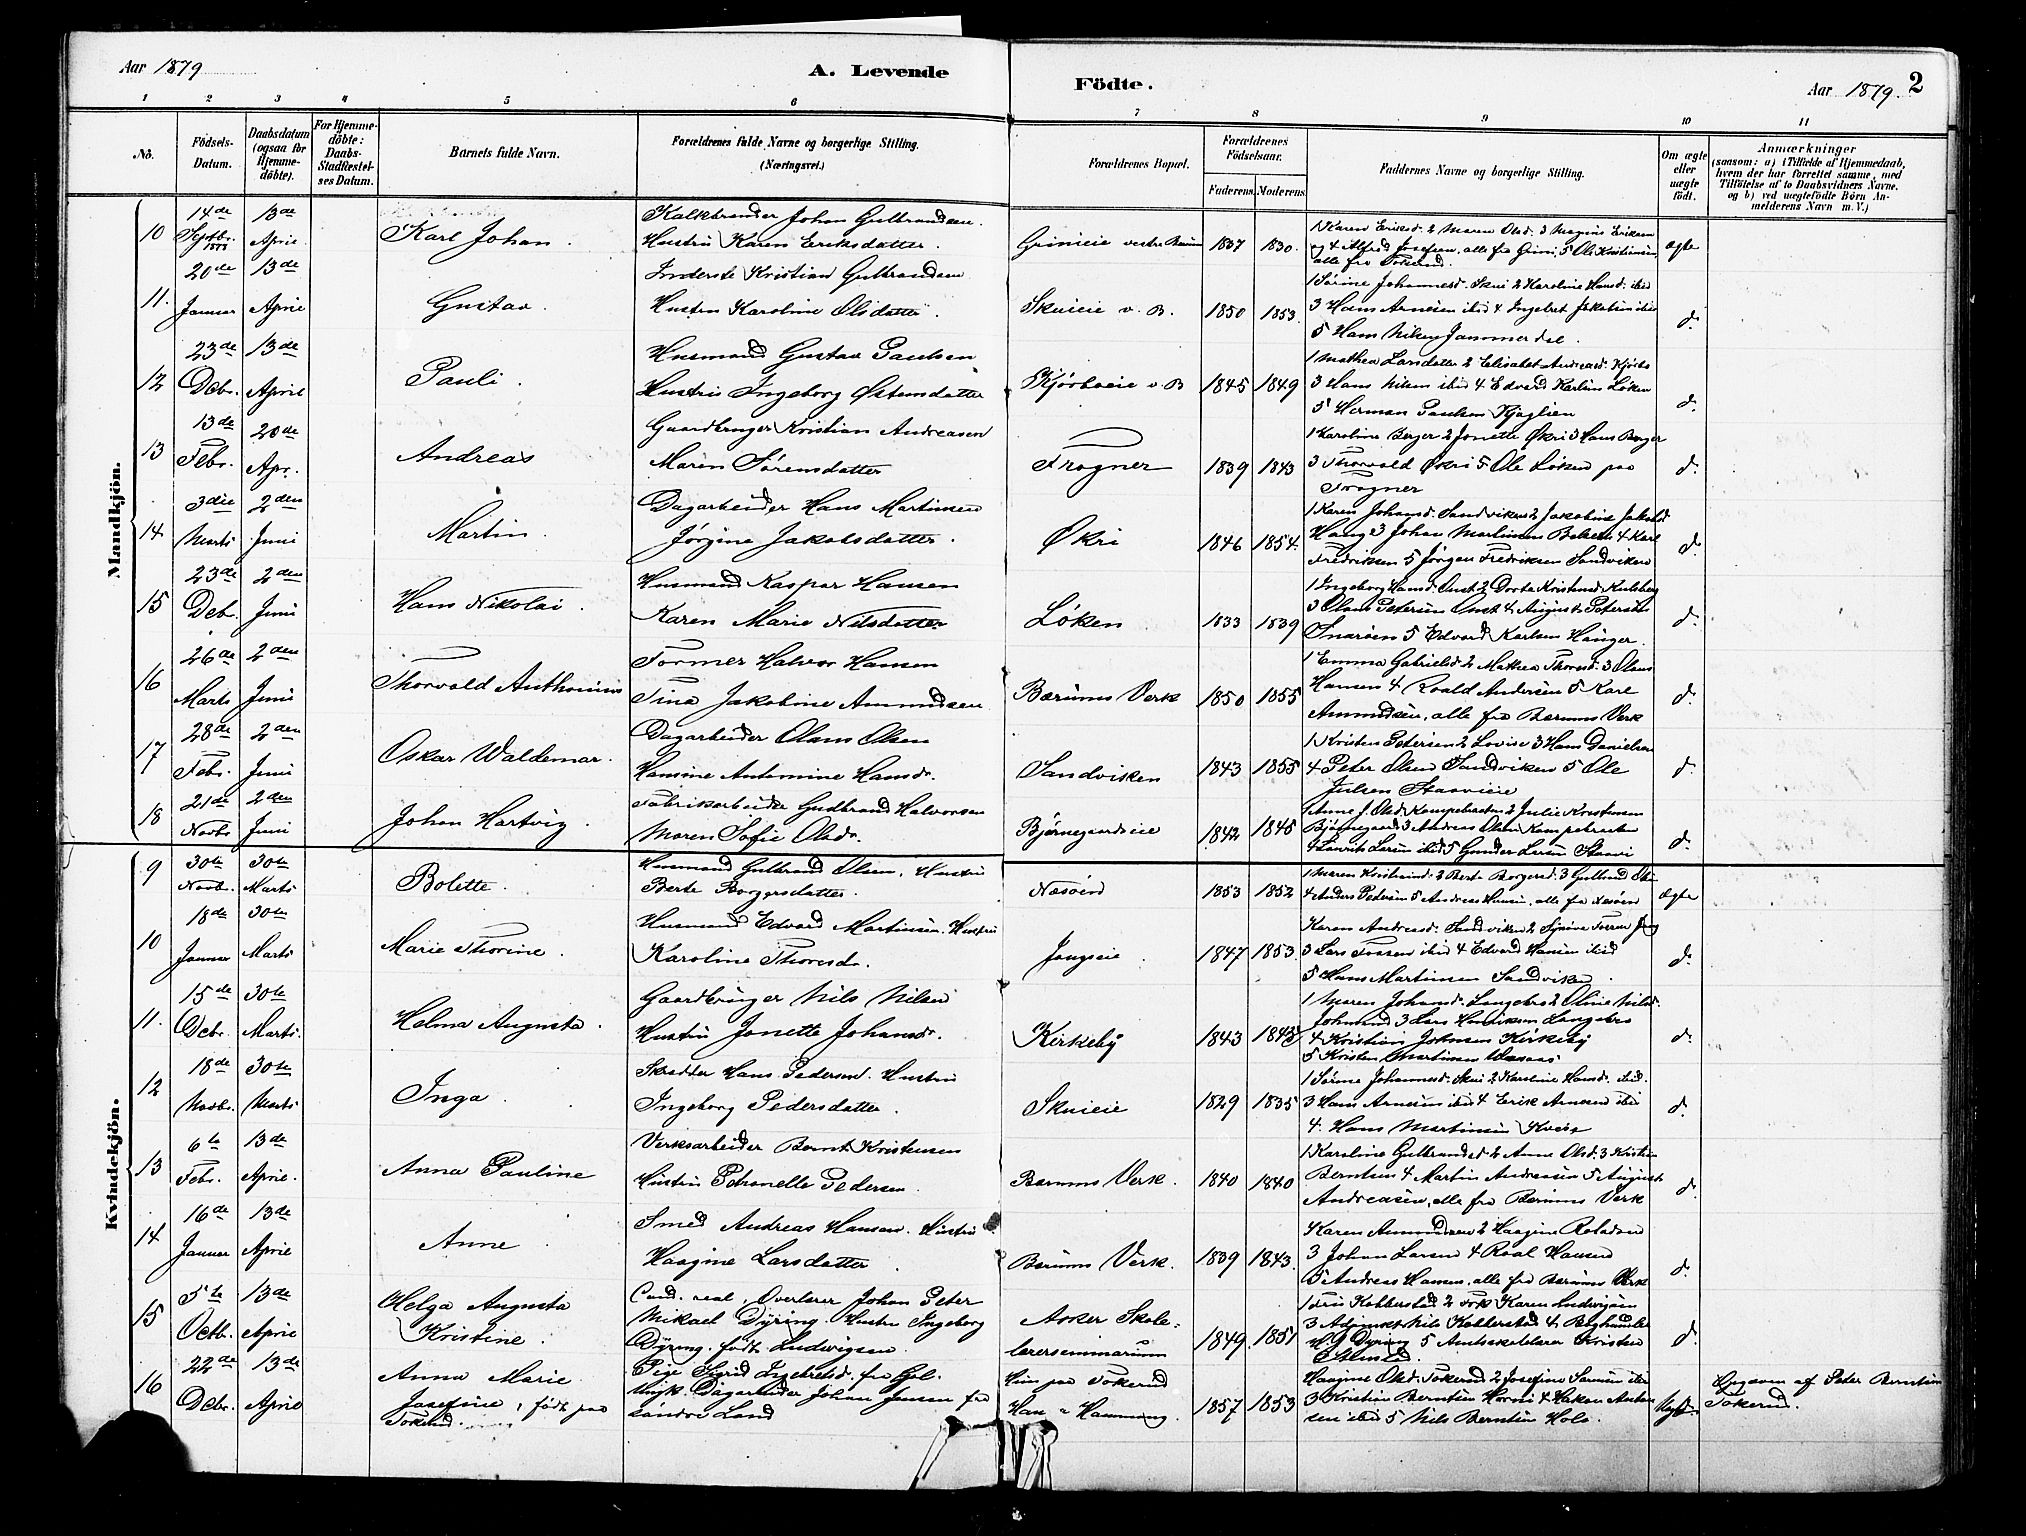 Aar 1879
A. Levende
Födte.
Aar 1879.
2
1 2 3 4 5 6 7 8 9 10 11
No.
Födsels-Datum.
Daabsdatum (ogsaa for Hjemme-döbte).
For Hjemme-döbte: Daabs-Stadfæstel-ses Datum.
Barnets fulde Navn.
Forældrenes fulde Navne og borgerlige Stilling. (Næringsvei.)
Forældrenes Bopæl.
Forældrenes Födselsaar.
Faderens. Moderens.
Faddernes Navne og borgerlige Stilling.
Om ægte eller uægte født.
Anmærkninger
(saasom: a) i Tilfælde af Hjemmedaab, hvem der har forrettet samme, med Tilföielse af to Daabsvidners Navne. og b) ved uægtefödte Börn An-melderens Navn m. V.)
Mandkjön.
10 14de Septbr. 1878 13de April Karl Johan Kalkbrænder Johan Gulbrandsen. Hustru Karen Eriksdatter. Grinieie vestre Bærum 1837 1830. 1 Karen Eriksd. 2 Maren Olsd. 3 Magnus Eriksen og 4 Alfred Josefsen, alle fra Grini, 5 Ole Kristiansen, alle fra Tokerud. ægte
11. 20de Januar 13de April Gustav. Inderste Kristian Gulbrandsen Hustru Karoline Olsdatter. Skuieie v. B. 1850 1853. 1 Sørine Johannesd. Skui 2 Karoline Hansd. ibid 3 Hans Arnesen ibid 4 Ingebret Jakobsen ibid 5 Hans Nilsen Jammerdal d.
12 23de Debr. 13de April Pauli. Husmand Gustav Paulsen Hustru Ingeborg Østensdatter Kjørboeie v. B 1845 1849 1 Mathea Larsdatter 2 Elisabet Andreasd. Kjørbo 3 Hans Nilsen ibid 4 Edvard Karlsen Løken 5 Herman Paulsen Kjaglien d.
13 13de Febr. 20de Apr. Andreas Gaardbruger Kristian Andreasen Maren Sørensdatter Frogner 1839 1843 1 Karoline Berger 2 Jonette Økri 3 Hans Berger 3 Thorvald Økri 5 Ole Løken paa Frogner d.
14 3die Marts 2den Juni Martin. Dagarbeider Hans Martinsen Jørgine Jakobsdatter. Økri 1846 1854. 1 Karen Johansd. Sandviken 2 Jakobine Jakobsd Haug 3 Johan Martinsen 4 Karl Fredriksen 5 Jørgen Fredriksen Sandviken d.
15 23de Debr. 2den Juni Hans Nikolai. Husmand Kaspar Hansen Karen Marie Nilsdatter Løken 1833 1839 1 Ingeborg Hansd. 2 Dorte Kristensd. 3 Olaus Petersen 4 August Petersen Snarøen 5 Edvard Karlsen Hanger. d.
16 26de Marts 2den Juni Thorvald Anthonius Former Halvor Hansen Tina Jakobine Amundsen Bærums Verk 1850 1855 1 Emma Gabrielsd 2 Mathea Thoresd. 3 Olaus Hansen 4 Roald Andersen 5 Karl Amundsen, alle fra Bærums Verk d.
17 28de Febr. 2den Juni Oskar Waldemar. Dagarbeider Olaus Olsen Hansine Antomine Hansdr. Sandviken 1843 1855 1 Kristen Petersen 2 Lovise 3 Hans Danielsen 4 Peter Olsen Sandviken 5 Ole Julsen Staavieie d.
18 21de Novbr. 2den Juni Johan Hartvig. Fabrikarbeider Gudbrand Halvorsen Maren Sofie Olsdr. Bjørnegaardseie 1842 1845 1 Anne J. Olsd. Kampebraaten 2 Julie Kristensen Bjørnegaard 3 Andreas Olsen Kampebraaten 4 Larsen ibid 5 Gunder Larsen Staavi d.
Kvindekjön.
9 30te Novbr. 30te Marts Bolette. Husmand Gulbrand Olsen. Hustru Berte Borgersdatter. Næsøen 1853 1852 1 Maren Kristiansd. 2 Berte Borgersd. 3 Gulbrand 4 Anders Pedersen 5 Andreas Hansen, alle fra Næsøen Ægte
10 18de Januar 30te Marts Marie Thorine. Husmand Edvard Martinsen. Hustru Karoline Thoresdr. Jongseie. 1847 1853. Karen Andreasd. Sandviken 2 3 Lars Tossen ibid 4 Edvard Hansen ibid 5 Hans Martinsen Sandviken. d.
11. 15de Debr. 30te Marts. Helma Augusta. Gaardbruger Nils Nilsen Hustru Jonette Johansdr. Kirkeby 1843 1843 1 Maren Johansd. 2 Oline Nilsd. 3 Lars Henriksen 4 Kristian Johnsen Kirkeby 5 Kristen Martinsen d.
12 18de Novbr. 30te Marts Inga. Skrædder Hans Pedersen. Hustru Ingeborg Pedersdatter. Skuieie 1829 1835 1 Sørine Johannesd. Skui 2 Karoline Hansd. ibid. 3 Hans Arnesen ibid 4 Erik Arnesen ibid 4. Hans Martinsen d.
13 6te Febr. 13de April. Anna Pauline Verksarbeider Bernt Kristensen Hustru Petronelle Pedersen. Bærums Verk. 1840 1840 1 Karoline Gulbrandsd 2 Anne Olsd. 3 Kristian Berntsen 4 Martin Andreasen 5 August Andreasen, alle fra Bærums Verk d.
14 16de Januar 13de April Anne Smed Andreas Hansen. Hustru Haagine Larsdatter. Bærums Verk. 1839 1843. Karen Amundsen 2 Haagine 3 Johan Larsen 4 Roal Hansen 5 Andreas Hansen, alle fra Bærums Verk d.
15 5te Octbr. 13de April Helga Augusta Kristine. Cand. real., Overlærer Johan Peter Mikael Dyring. Hustru Ingeborg Dyring, født Ludvigsen. Asker Skole-lærerseminarium 1849. 1851 1 Fru Kobberstad 2 Frk Karen Ludvigsen 3 Adjunkt Nils Kobberstad 4 Boghandler Dyring 5 Amtsskolelærer Kristen d.
16 22de Debr. 13de April Anna Marie Josefine, født paa Tokerud. Pige Sigrid Ingebretsd. fra Gol. Ungk. Dagarbeider Johan Jensen fra søndre Land Hun paa Tokerud Han Hammang. 1857 1853 Haagine Olsd. Tokerud 2 Josefine ibid 3 Kristian Berntsen 4 Hakon ibid 5 Nils Berntsen Hole. Uægte Opgaven af Peter Berntsen Tokerud.